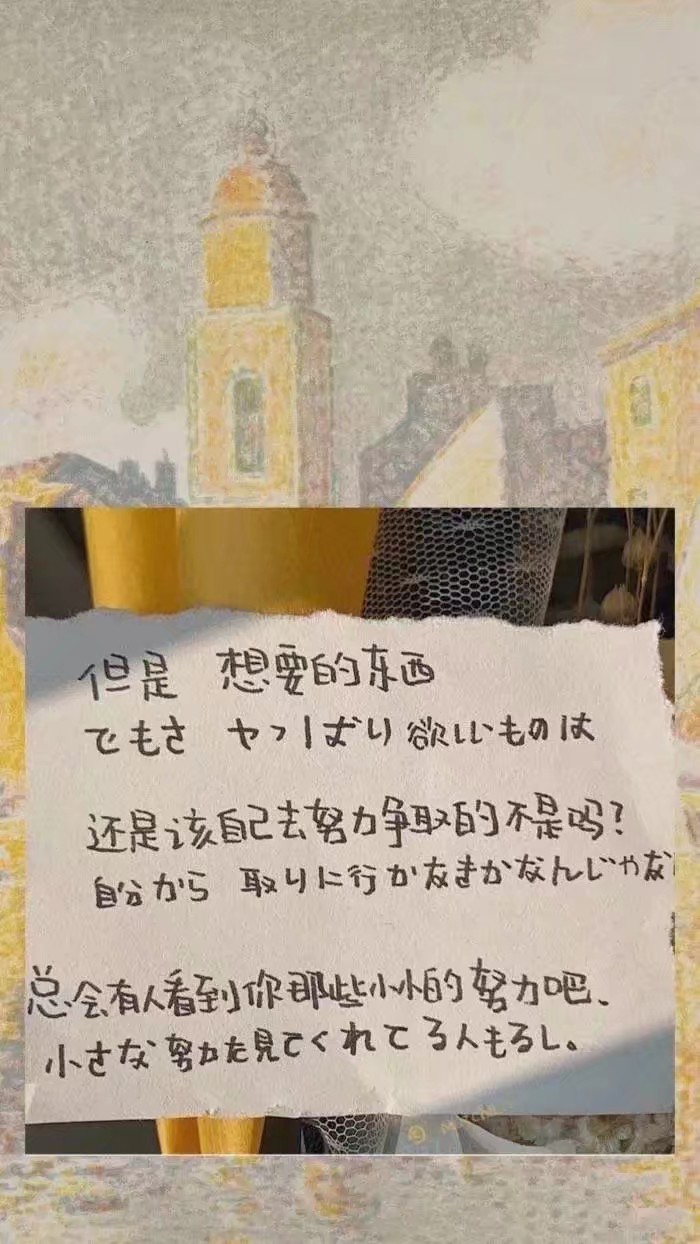 但是 想要的东西
でもさ やっぱり欲しいものは
还是该自己去努力争取的不是吗？
自分から 取りに行かなきかなんじゃな
总会有人看到你那些小小的努力吧、
小さな努力を見てくれてる人もるし。